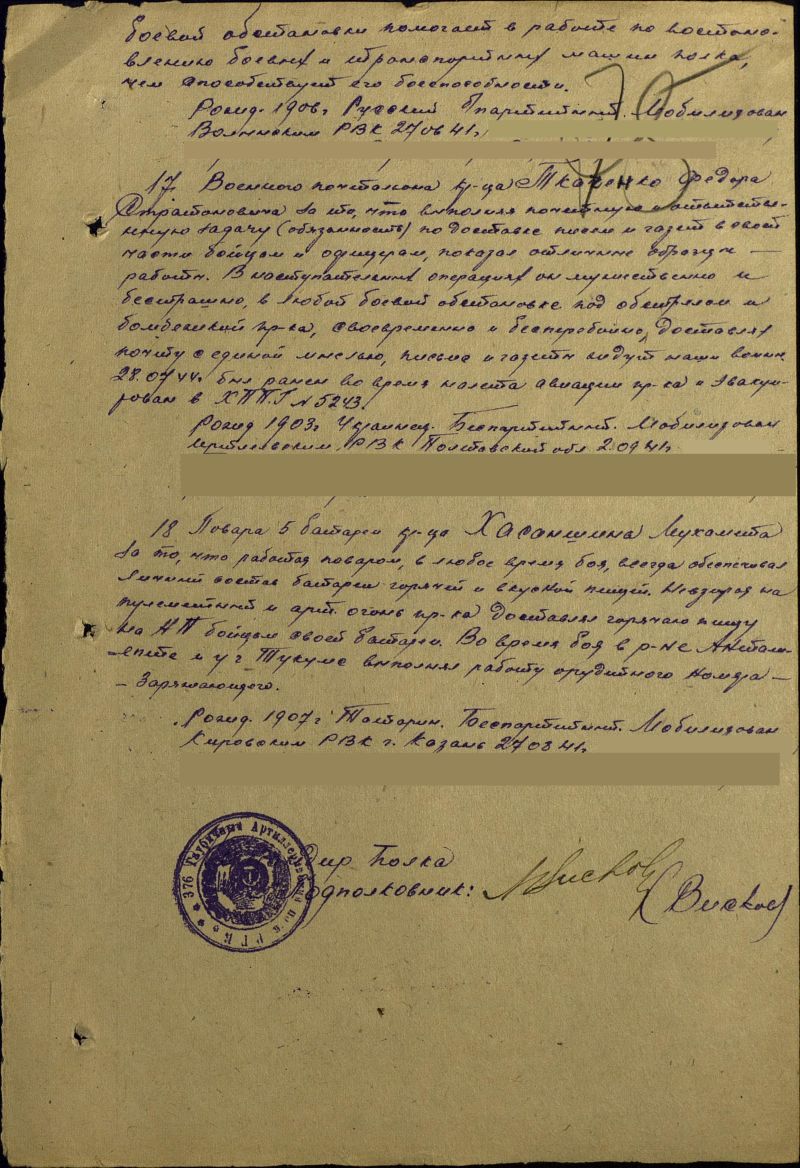 боевой обстановки помогает в работе по востано-
влению боевых и транспортных машин полка,
чем способствует его боеспособности.
Рожд. 1906г Русский Мобилизован
РВК 27 06 41г.
17. Военного почтальона кр-ца Ткаченко Федора
за то, что выполняя почетную и ответстве-
нную задачу (обязанность) по доставке писем и газет в своей
части бойцам и офицерам, показал отличные образцы —
работы. В наступательных операциях он мужественно и
бесстрашно, в любой боевой обстановке под обстрелом и
бомбежкой пр-ка, своевременно и бесперебойно, доставлял
почту с единой мыслью, письма и газеты ждут наши воины
28.07.44г. был ранен во время налета авиации пр-ка и эвакуи-
рован в ХППГ № 5243.
Рожд 1903г Украинец. Беспартийный. Мобилизован
РВК Полтавской обл 2.09 41г.
18 Повара 5 батареи кр-ца Хасаншина Мухамета
за то, что работая поваром, в любое время боя, всегда обеспечивал
личный состав батареи горячей и вкусной пищей. Невзирая на
пулеметный и арт. огонь пр-ка доставлял горячую пищу
на НП бойцам своей батареи. Во время боя в р-не
и у г. Тукумс выполнял работу орудийного номера —
— Заряжающего.
Рожд. 1907г Татарин. Беспартийный. Мобилизован
Кировским РВК г. Казань 27 08 41г.
376 Гаубичный Артиллерийский полк Р Г К
Полка
Подполковник: (Висков)